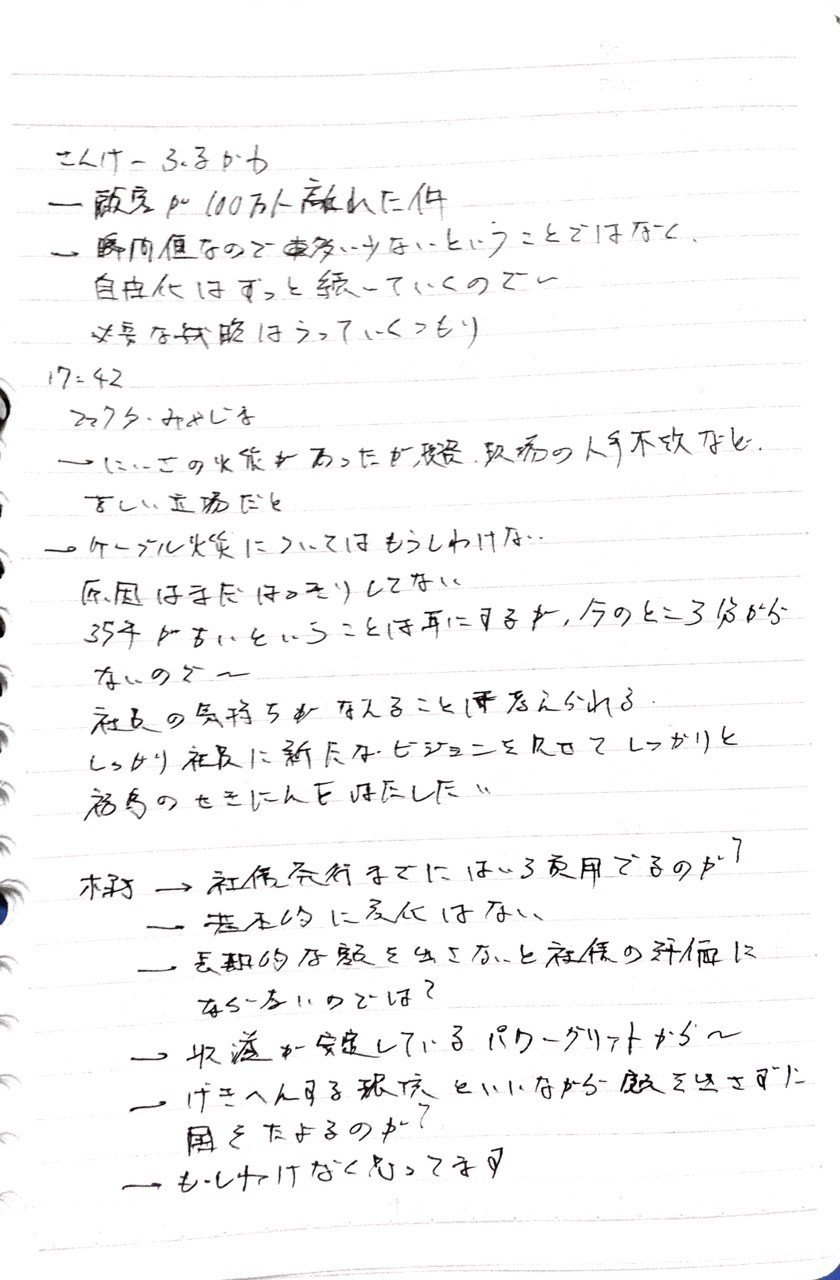 さんけー ふるかわ
ー 顧客が100万人離れた件
→ 瞬間値なので多い少ないということではなく、
自由化はずっと続いていくので〜
必要な戦略はうっていくつもり
17:42
みやじま
→ にいざの火災があったが 現場の人手不欠など、
苦しい立場だと
→ ケーブル火災についてはもうしわけない
原因はまだはっきりしてない
35年が古いということは耳にするが、今のところ分から
ないので〜
社長の気持ちがなえることは考えられる
しっかり社員に新たなビジョンを見せてしっかりと
福島のせきにんをはたしたい
→ 社債発行までにはいろ費用でるのか?
ー 基本的に変化はない
→ 長期的な額を出さないと社債の評価に
ならないのでは?
→ 収益が安定しているパワーグリットから〜
→ げきへんする環境といいながら額を出さずに
国をたよるのか?
ー もうしわけなく思ってます